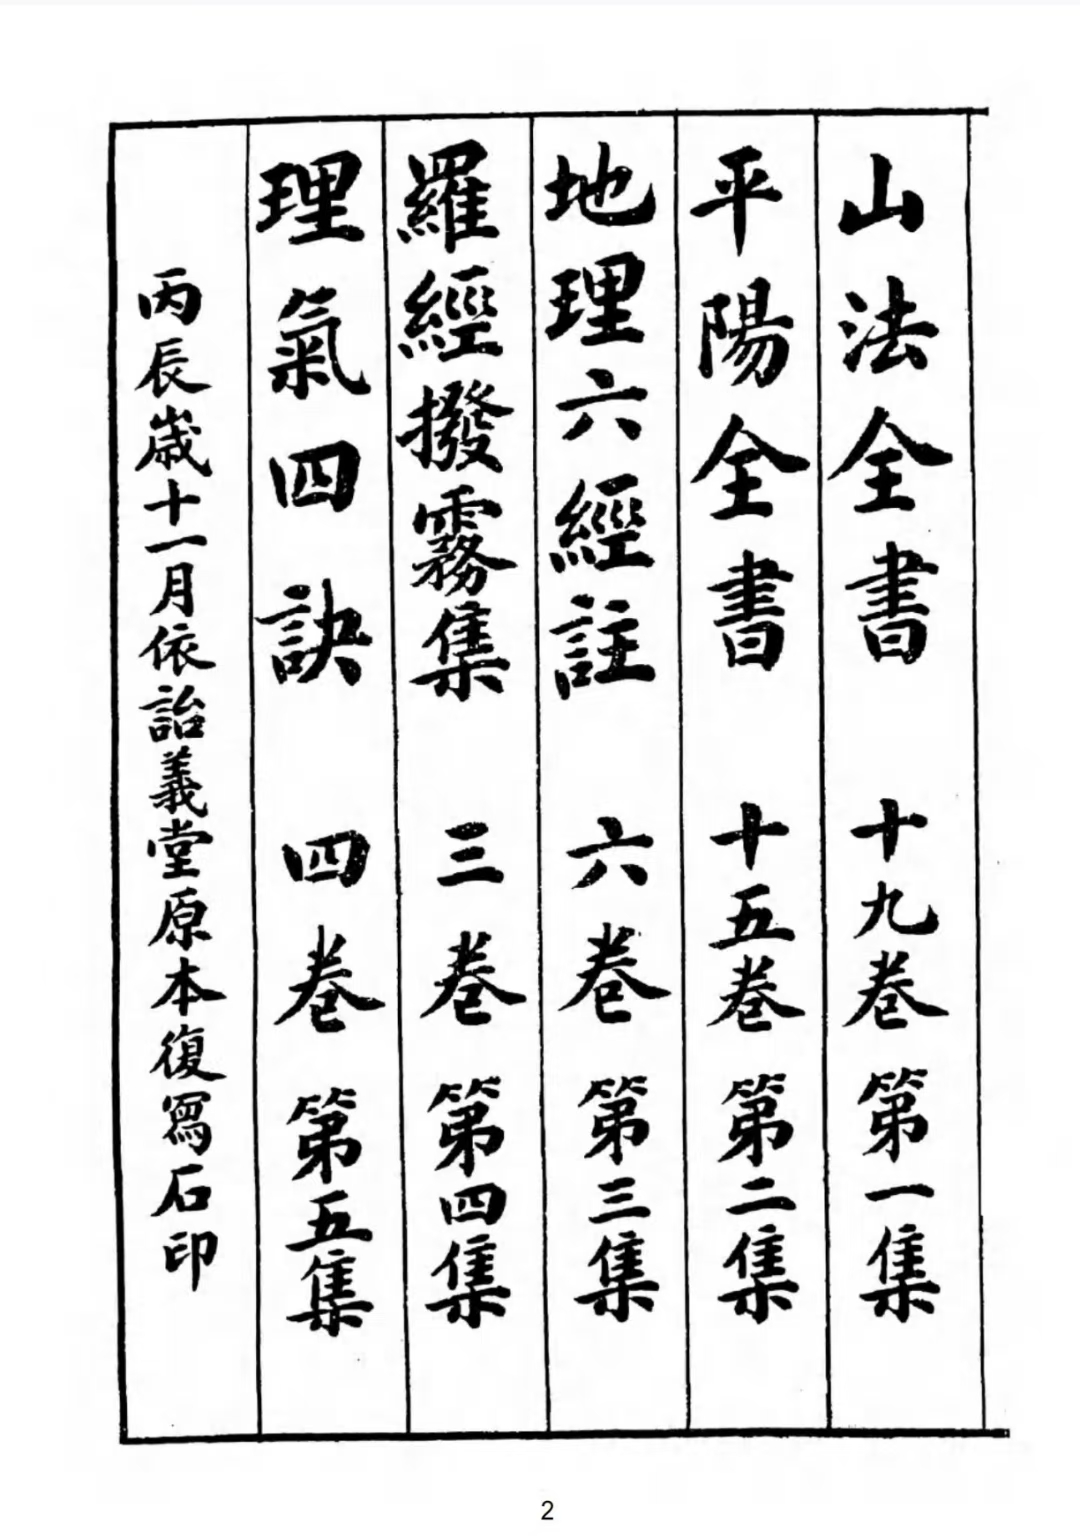 山法全書 十九卷 第一集
平陽全書 十五卷 第二集
地理六經註 六卷 第三集
羅經撥霧集 三卷 第四集
理氣四訣 四卷 第五集
丙辰歲十一月依詒義堂原本復寫石印
2